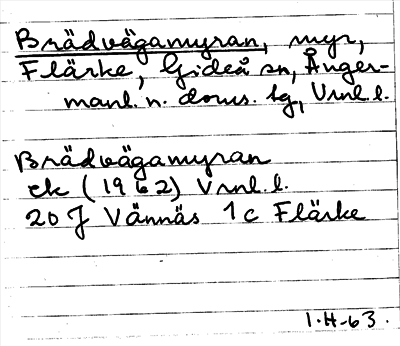 Brädvägamyran, myr,
Flärke, Gideå sn, Ånger-
manl. n. doms. lg, Vrnl. l.
Brädvägamyran
ek (1962) Vrnl. l.
20 J Vännäs 1c Flärke
I.H-63.